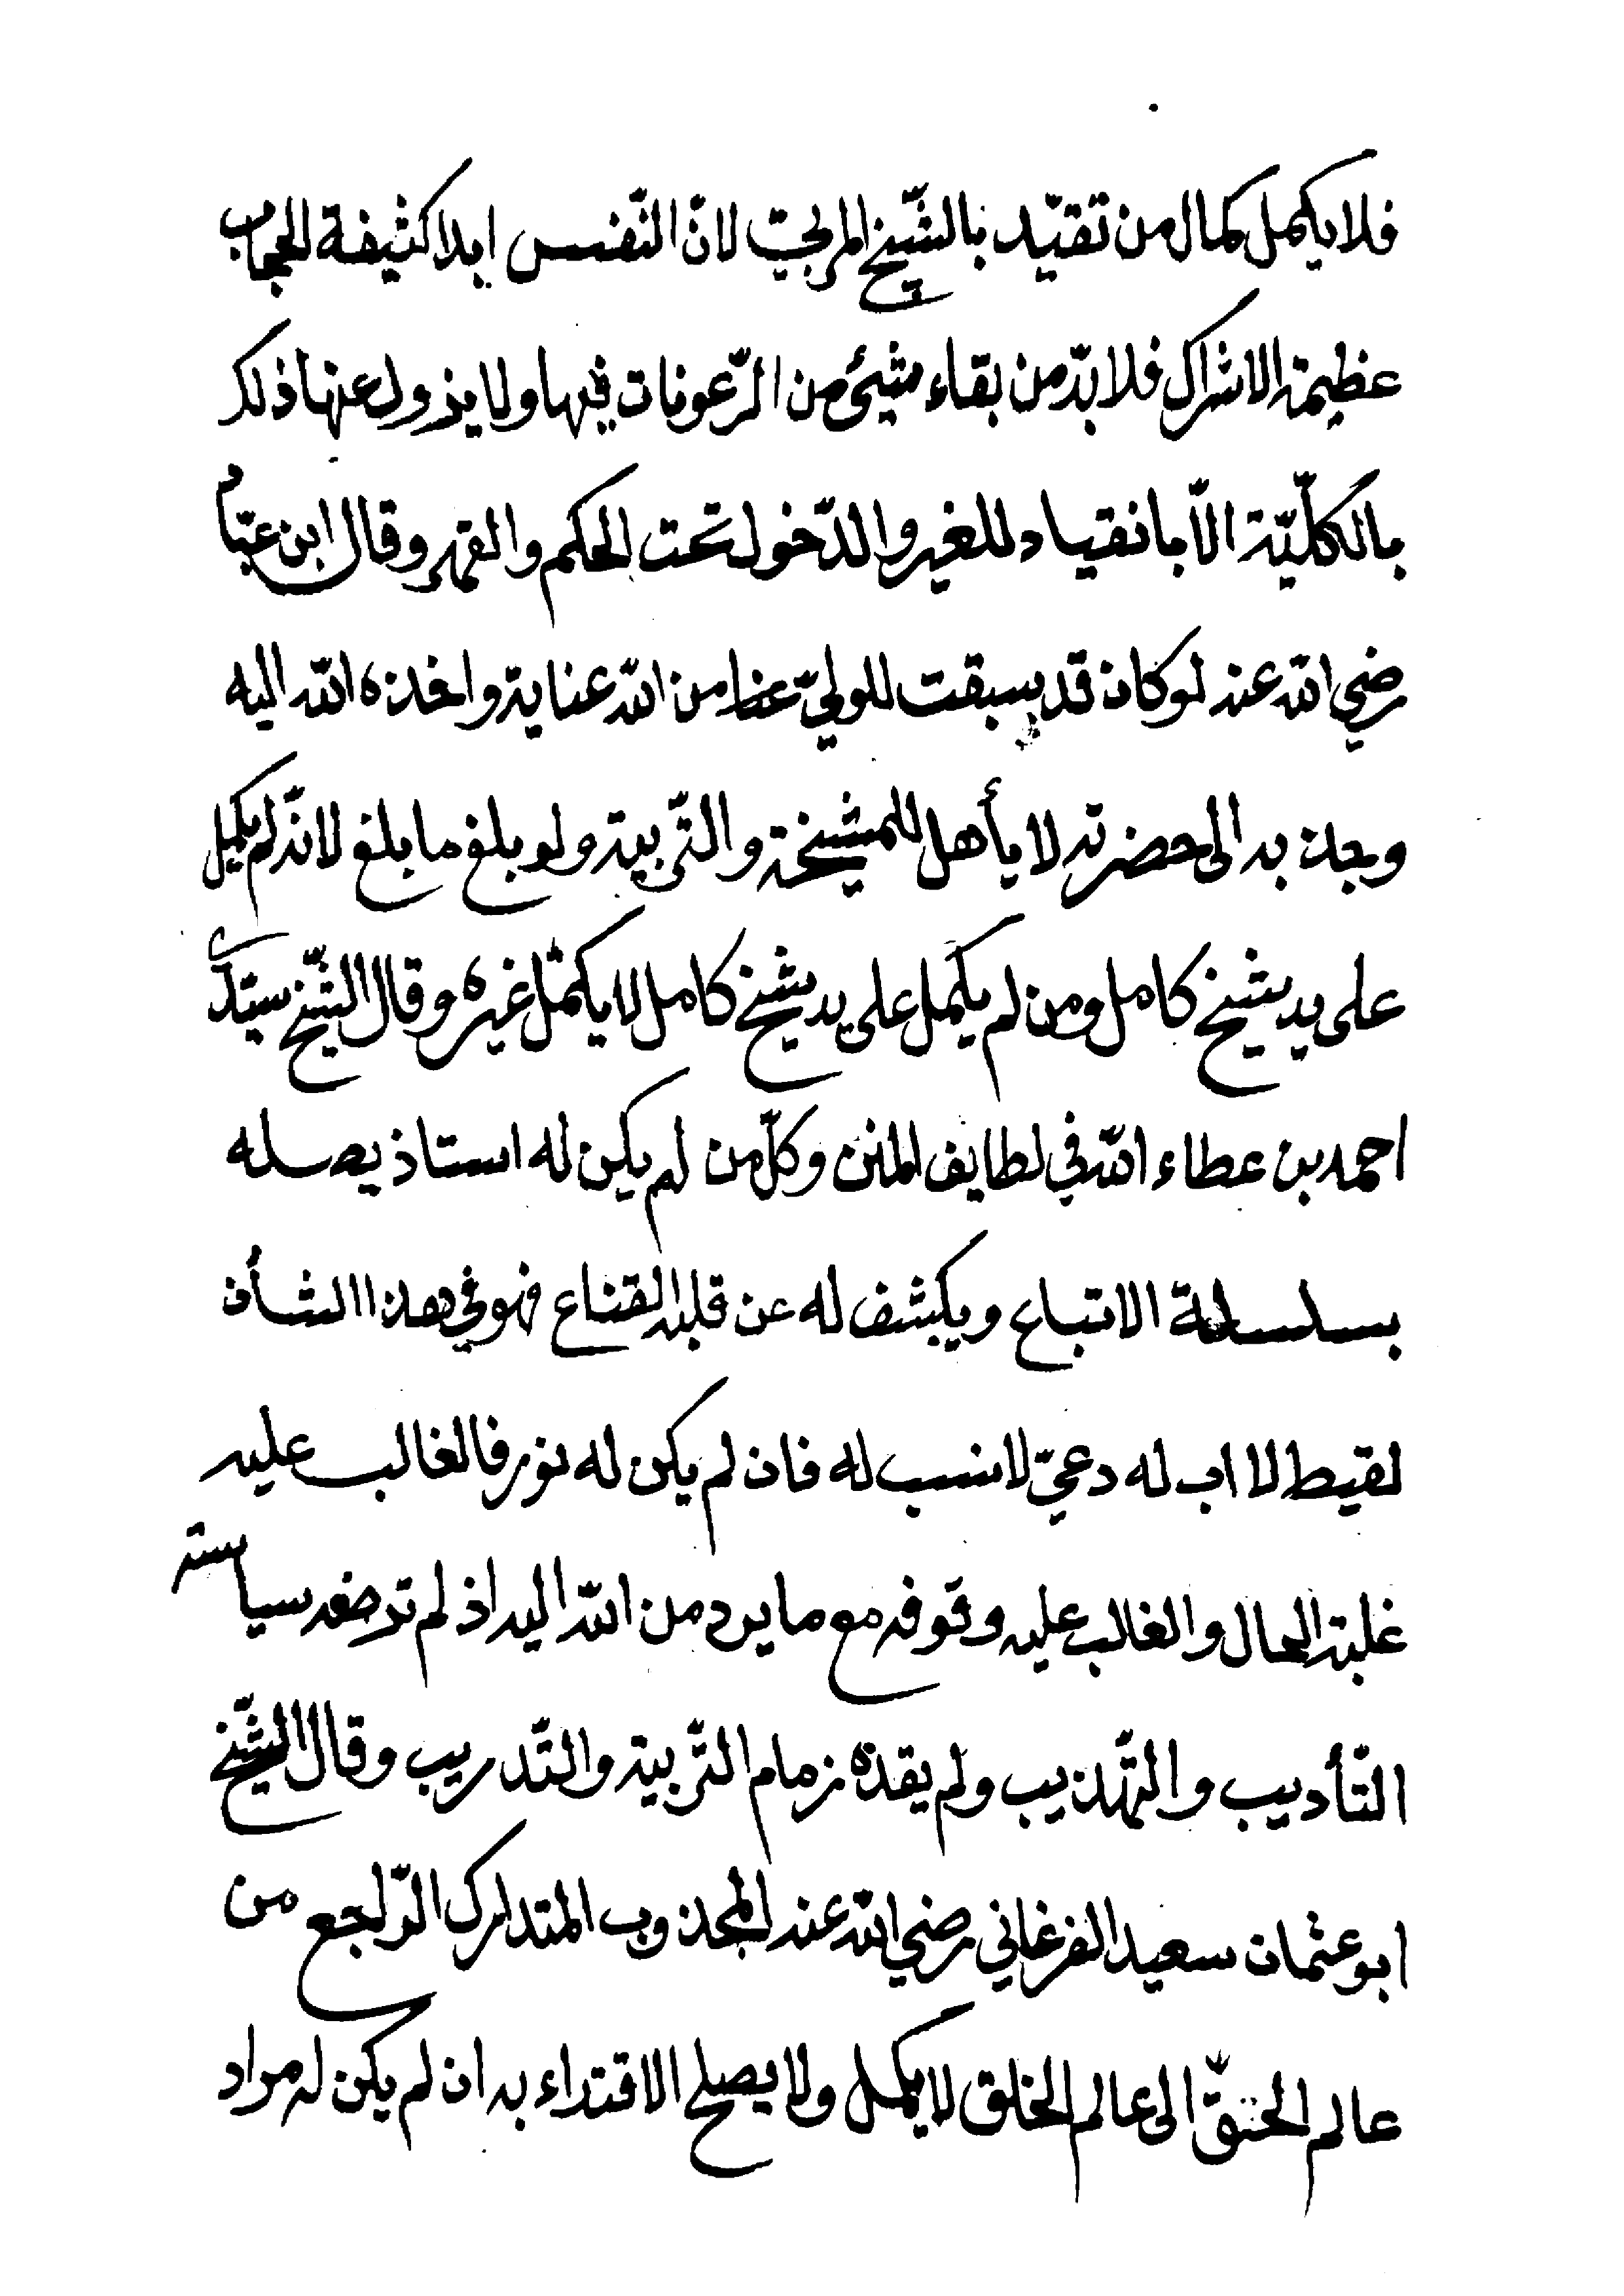 فلا يكمل كمال من تقيّد بالشّيخ المربيّ لانّ النّفس ابدا كثيفة الحجاب
عظيمة الاشراك فلا بدّ من بقاء شيئ من الرّعونات فيها ولا يزول عنها ذلك
بالكلّيّة الاّ بانقياد للغير والدّخول تحت الحكم والقهر وقال ابن عبّاد
رضي الله عنه لو كان قد سبقت للوليّ من الله عناية واخذه الله اليه
وجذبه الى حضرته لا يأهل للمشيخة والتّربية ولو بلغ ما بلغ لانّه لم يكمل
على يد شيخ كامل ومن لم يكمل على يد شيخ كامل لا يكمّل غيره وقال الشّيخ سيّدي
احمد بن عطاء الله في لطايف المنن وكلّ من لم يكن له استاذ يصله
بسلسلة الاتباع ويكشف له عن قلبه القناع فهو في هذا الشأن
لقيط لا اب له دعيّ لا نسب له فان لم يكن له نور فالغالب عليه
غلبة الحال والغالب عليه وقوفه مع ما يرد من الله اليه اذ لم ترضه سياسة
التّأديب والتّهذيب ولم يقده زمام التّربية والتّدريب وقال الشّيخ
ابو عثمان سعيد الفرغاني رضي الله عنه المجذوب المتدارك الرّاجع من
عالم الحقّ الى عالم الخلق لا يكمل ولا يصلح الاقتداء به ان لم يكن له مراد